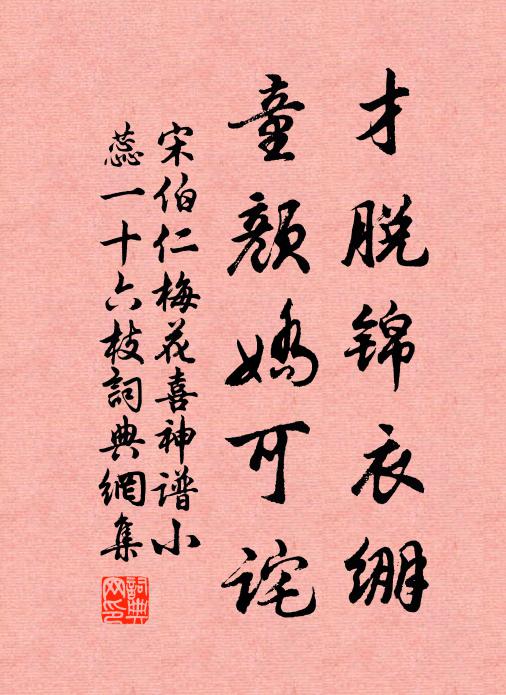 才脱锦衣绷
童颜娇可诧
宋伯仁梅花喜神谱小
蕊一十六枝詞典網集
詞典网印